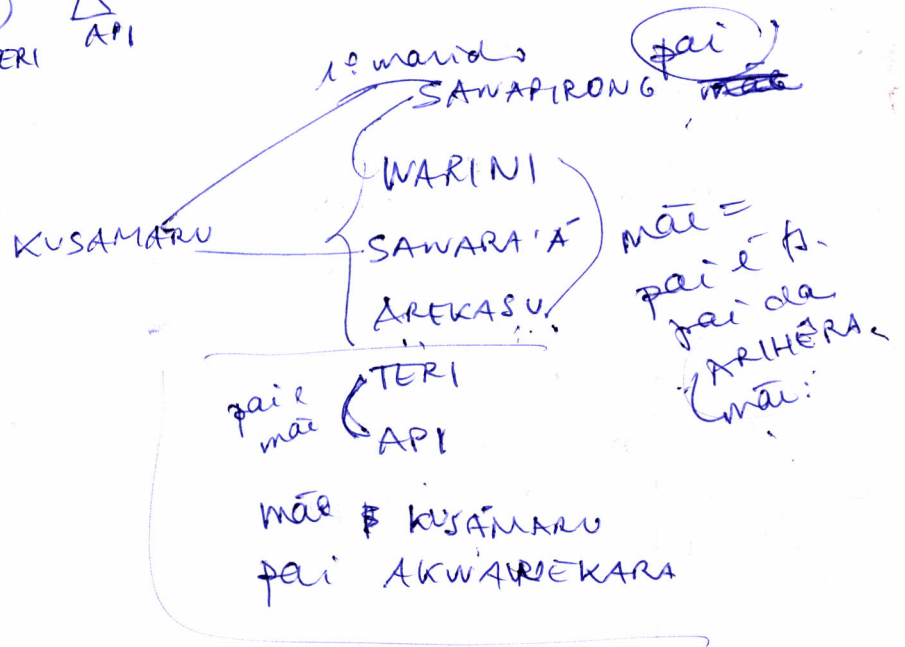 ERI API
1º marido
SAWAPIRONG pai mãe
WARINI
KUSAMARU
SAWARA'Á
AREKASU
mãe =
pai é
pai da
ARIHÊRA
mãe:
pai e
mãe
TERI
API
mãe KUSAMARU
pai